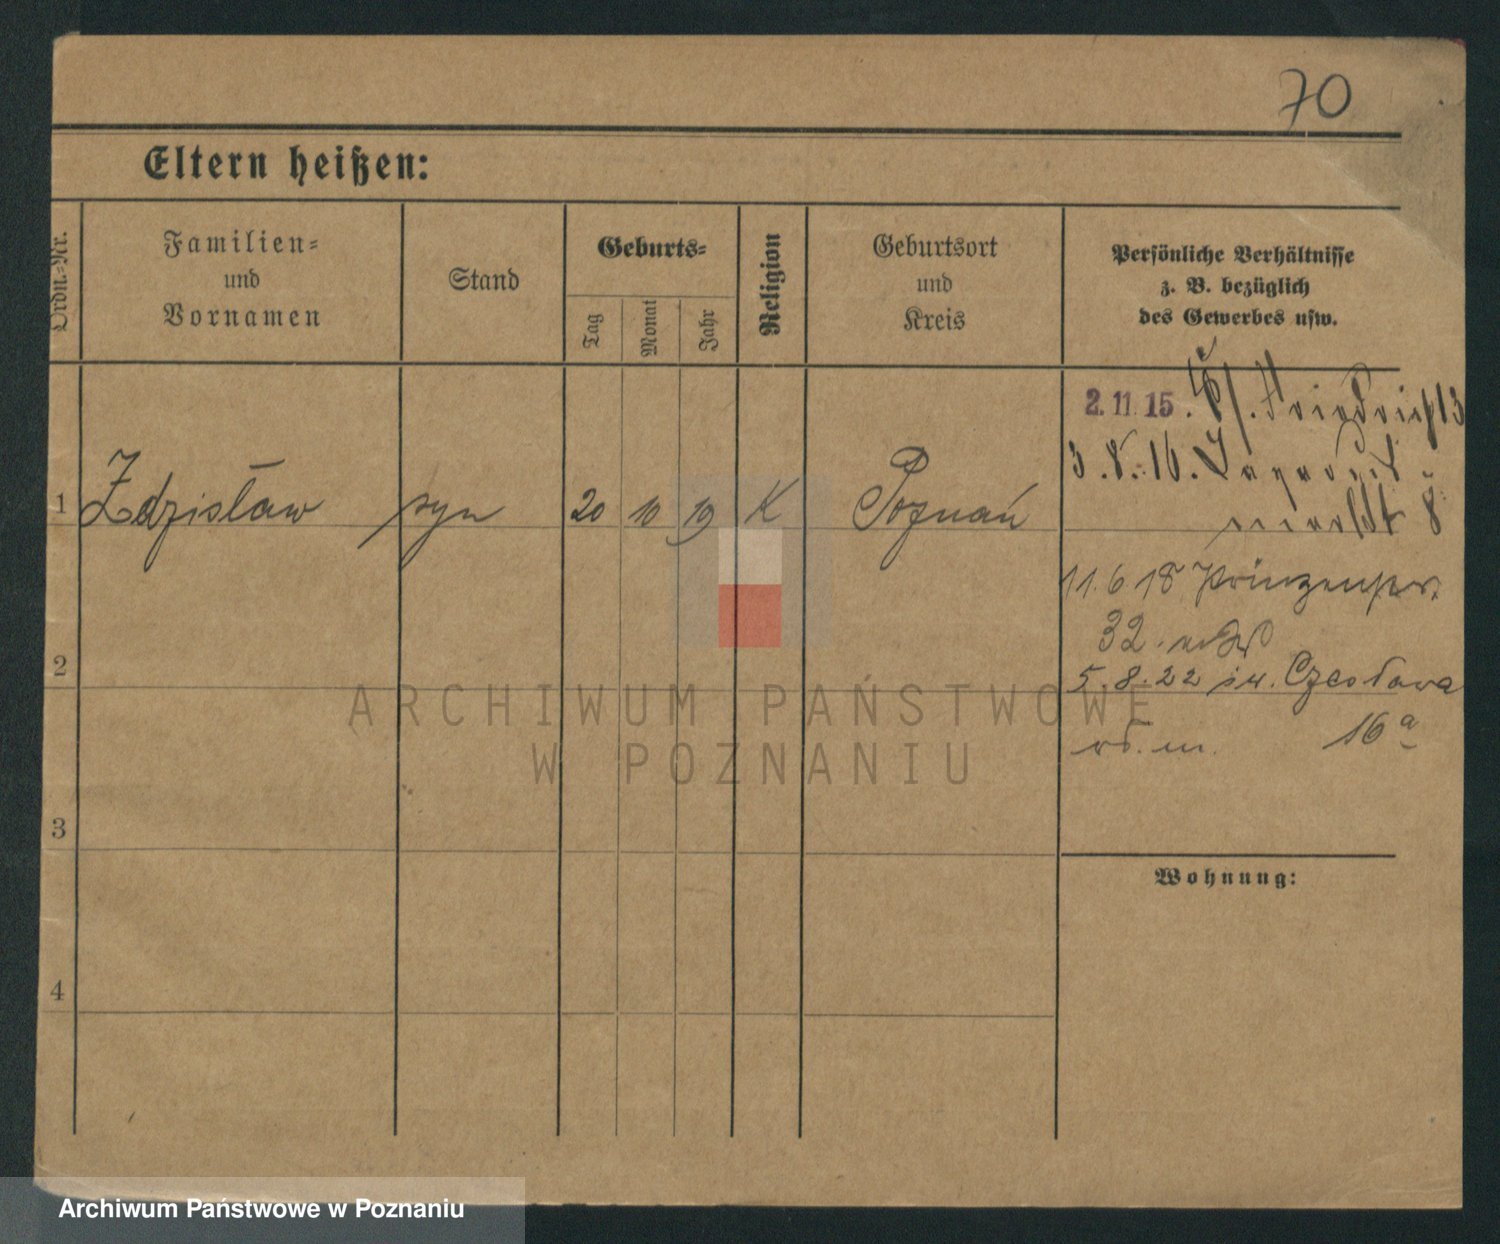 70
Eltern heißen:
Ordn.-Nr.
Familien-
und
Vornamen
Stand
Geburts-
Tag
Monat
Jahr
Religion
Geburtsort
und
Kreis
Persönliche Verhältnisse
z. B. bezüglich
des Gewerbes usw.
1 Zdzisław syn 20 10 19 K Poznań
2.11.15.
3.8.16.
8
11.6.18 Prinzenstr.
32.
5.8.22 św. Czesława
16a
2
3
4
Wohnung:
ARCHIWUM PAŃSTWOWE
W POZNANIU
Archiwum Państwowe w Poznaniu